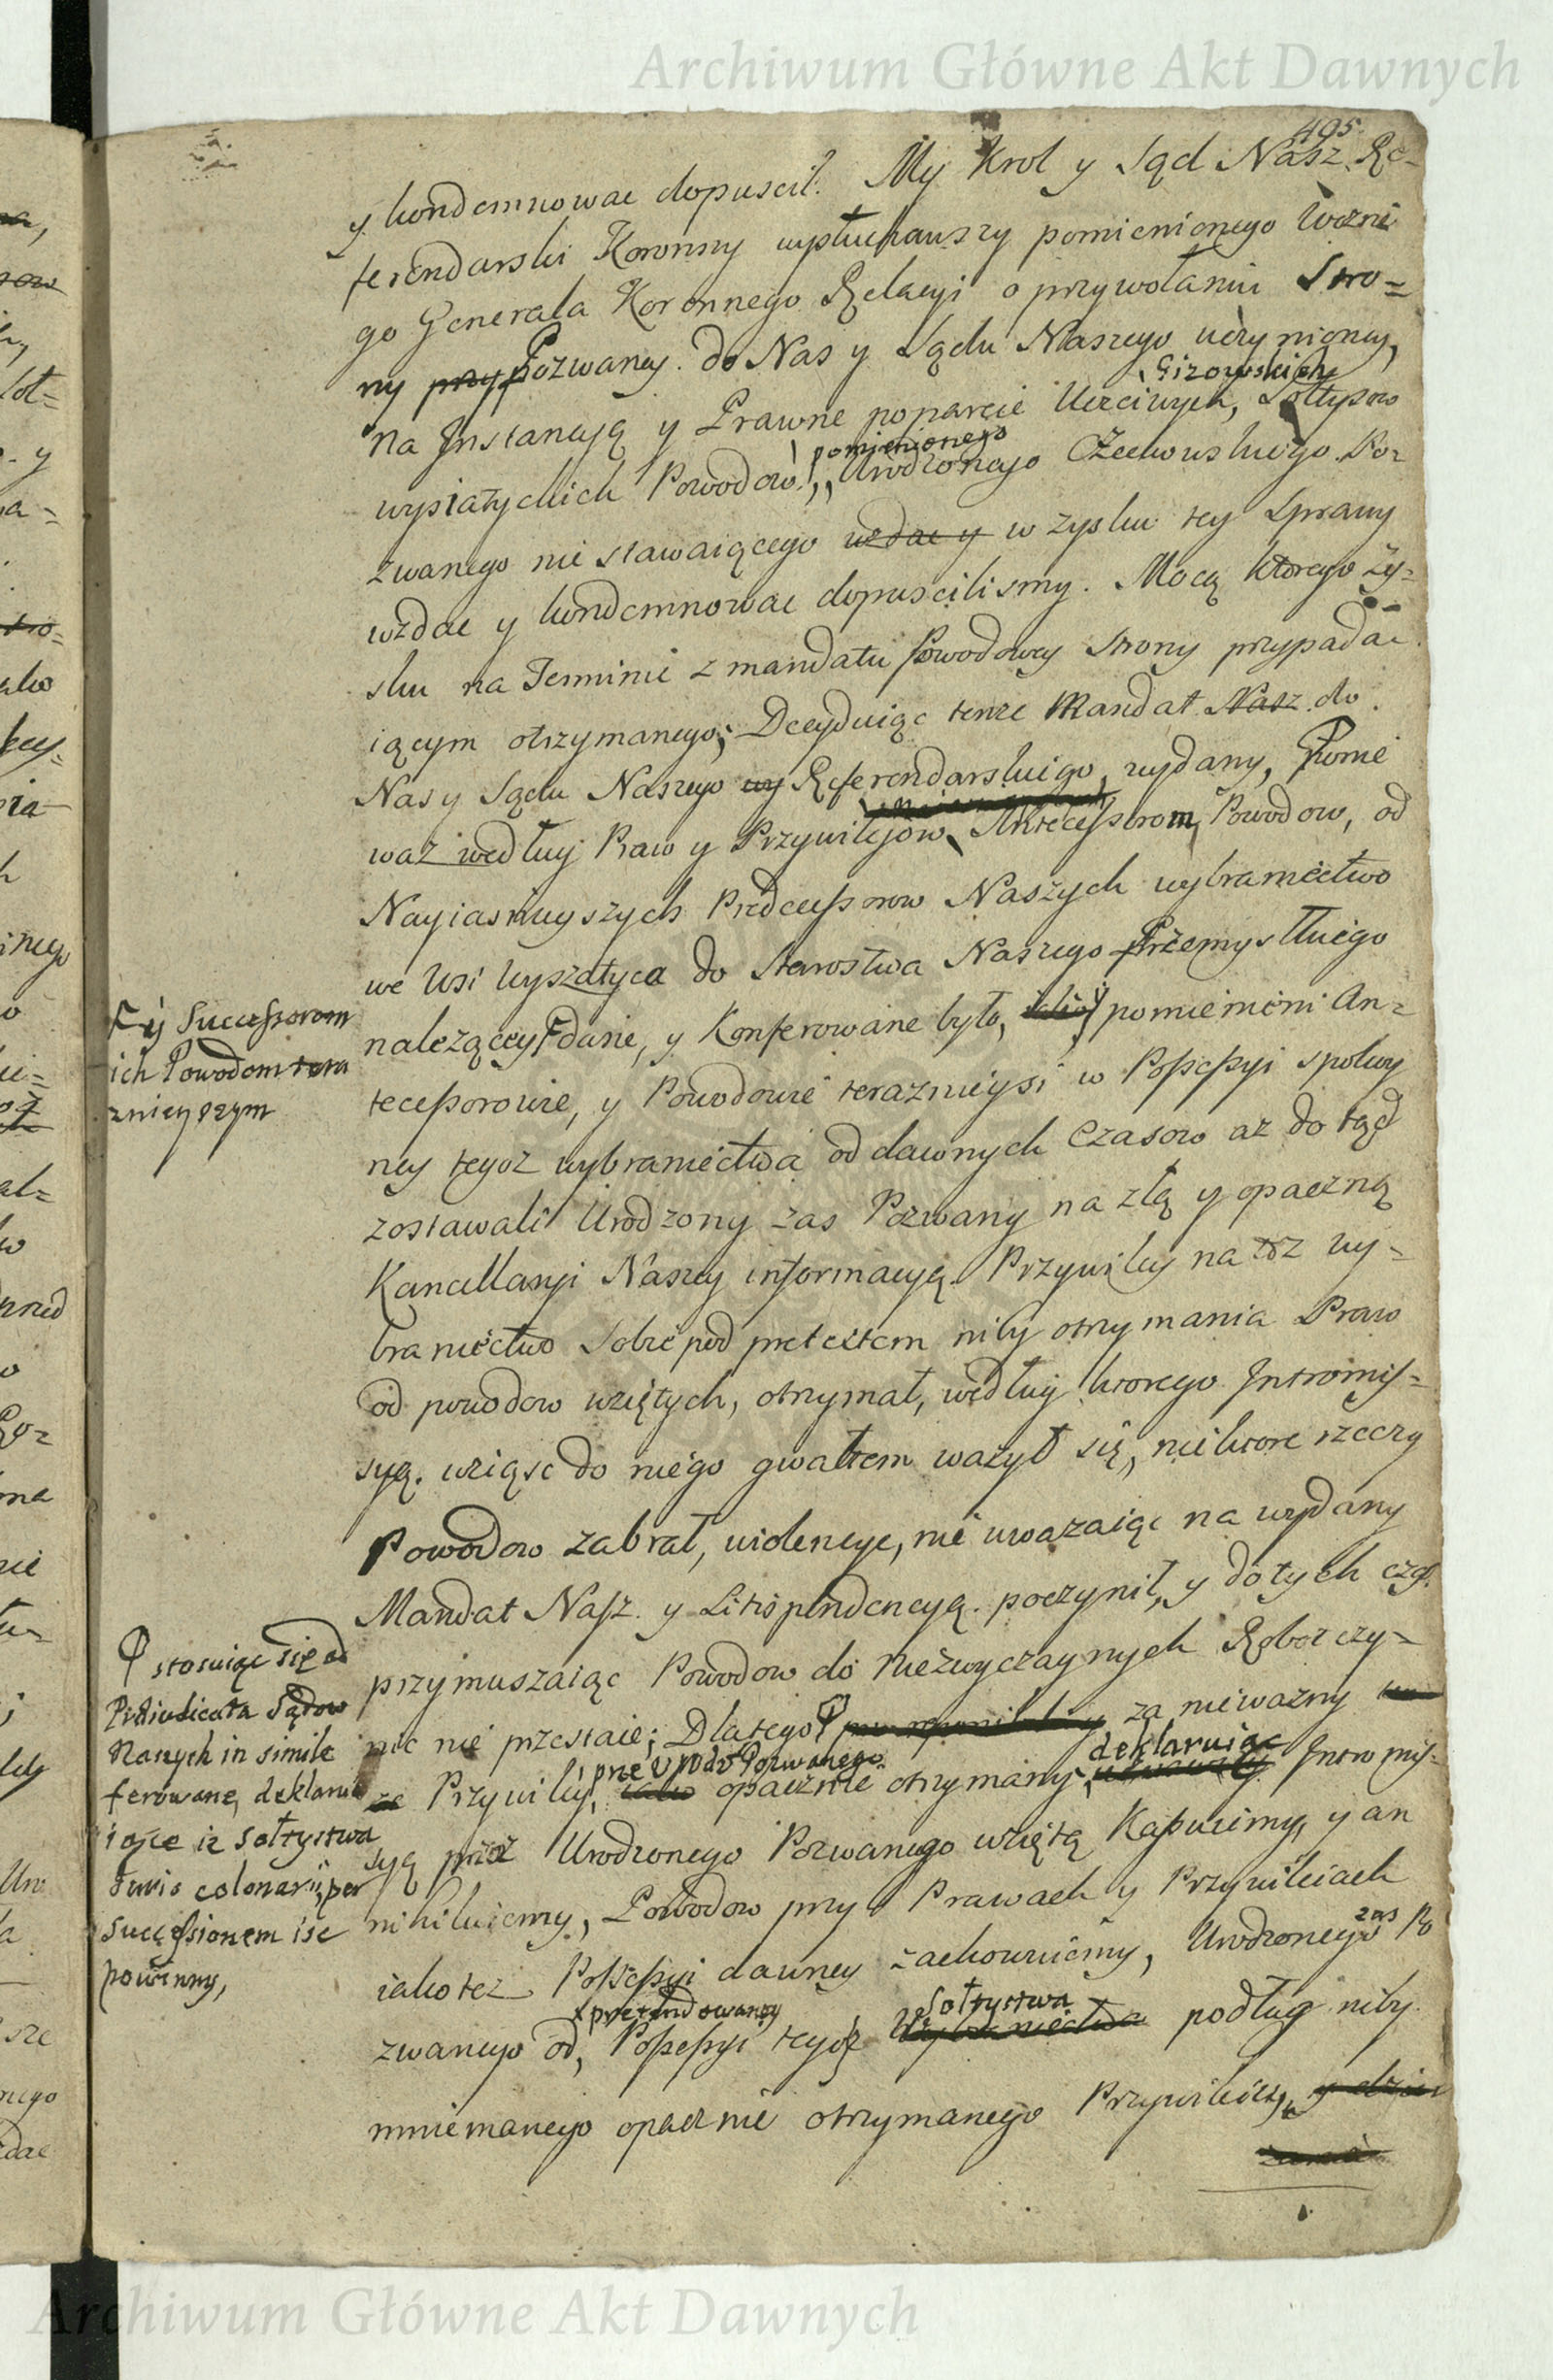 Archiwum Główne Akt Dawnych
495.
y kondemnowac dopuscił. My Krol y Sąd Nasz Re-
ferendarski Koronny wysłuchawszy pomienionego Wozne
go Generała Koronnego Relacyi o przywołaniu Stro=
ny przy Pozwaney. do Nas y Sądu Naszego uczynioney,
Gizowskich
na Jnstancyą y Prawne poparcie Uczciwych, Sołtysow
pomienionego
wysiatyckich Powodow, Urodzonego Czechowskiego Po=
zwanego nie stawaiącego wzdac y w zysku tey Sprawy
wzdac y kondemnowac dopuscilismy. Mocą ktorego Zy=
sku na Terminie z mandatu Powodowey Strony przypada
iącym otrzymanego; Decyduiąc tenze Mandat Nasz do
Nas y Sądu Naszego wy Referendarskiego, wydany, Ponie
waz według Praw y Przywileiow Antecessorom Powodow, od
Nayiasnieyszych Predcessorow Naszych wybraniectwo
we Wsi Wyszatyca do Starostwa Naszego Przemyslkiego
należącey dane, y Konferowane było, y pomienieni An=
tecessorowie, y Powodowie teraznieysi w Possessyi spokoy
ney tegoz wybraniectwa od dawnych Czasow az do tąd
zostawali Urodzony zas Pozwany na złą y opaczną
Kancellaryi Naszey informacyą. Przywiley na toz wy=
braniectwo Sobie pod pretextem niby otrzymania Praw
od powodow wziętych, otrzymał, według ktorego Jntromis=
syą. wziąsc do niego gwałtem ważył się, niektore rzeczy
Powodow zabrał, violencye, nie uwazaiąc na wydany
Mandat Nasz. y Litispendencyą. poczynił, y do tych czas
przymuszaiąc Powodow do niezwyczaynych Robot czy=
nic nie przestaie; Dlatego za niewazny
przez Urodz Pozwanego deklaruiąc
Przywiley, iako opacznie otrzymany, Jntromis=
syą przez Urodzonego Pozwanego wziętą Kassuiemy, y an
nihiluiemy, Powodow przy Prawach y Przywileiach
iako tez Possessyi dawney zachowuiemy, Urodzonego zas Po
pretendowaney Sołtystwa
zwanego od, Possessyi tegoz Wybraniectwa podług niby
mniemanego opacznie otrzymanego Przywileiu, y
y Successorom
ich Powodom tera
znieyszym
stosuiąc się do
Preiudicata Sądow
Naszych in simile
ferowane, deklaru
iące iz Sołtystwa
Juris colonarii, per
successionem isc
powinny,
Archiwum Główne Akt Dawnych